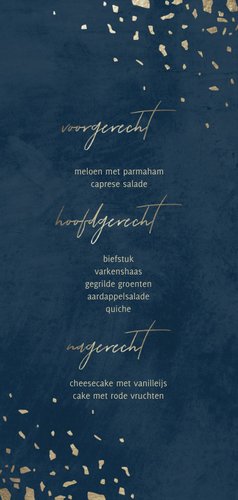 voorgerecht
meloen met parmaham
caprese salade
hoofdgerecht
biefstuk
varkenshaas
gegrilde groenten
aardappelsalade
quiche
nagerecht
cheesecake met vanilleijs
cake met rode vruchten